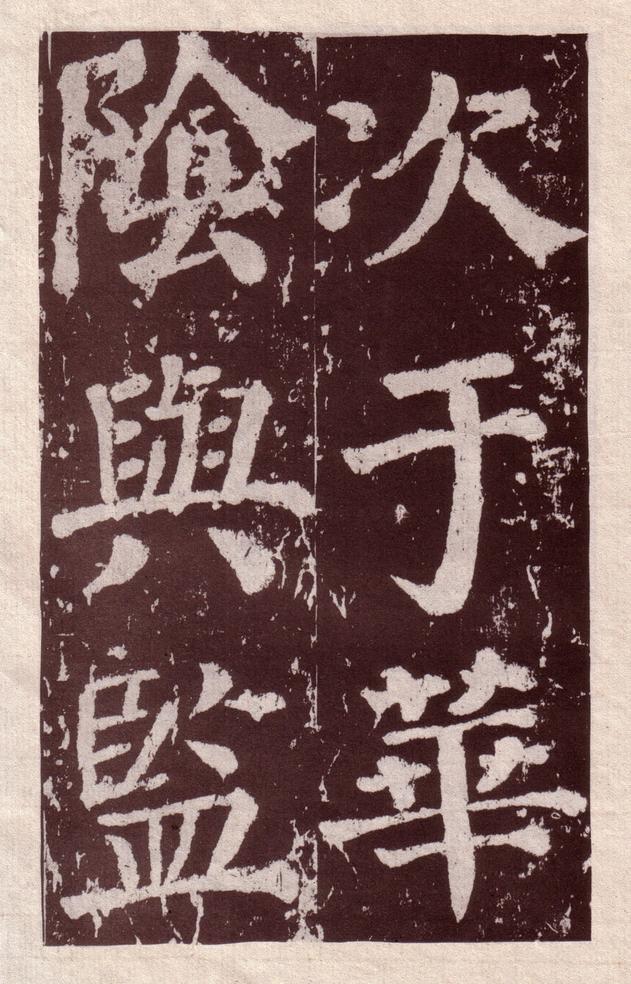 次于華
陰與監